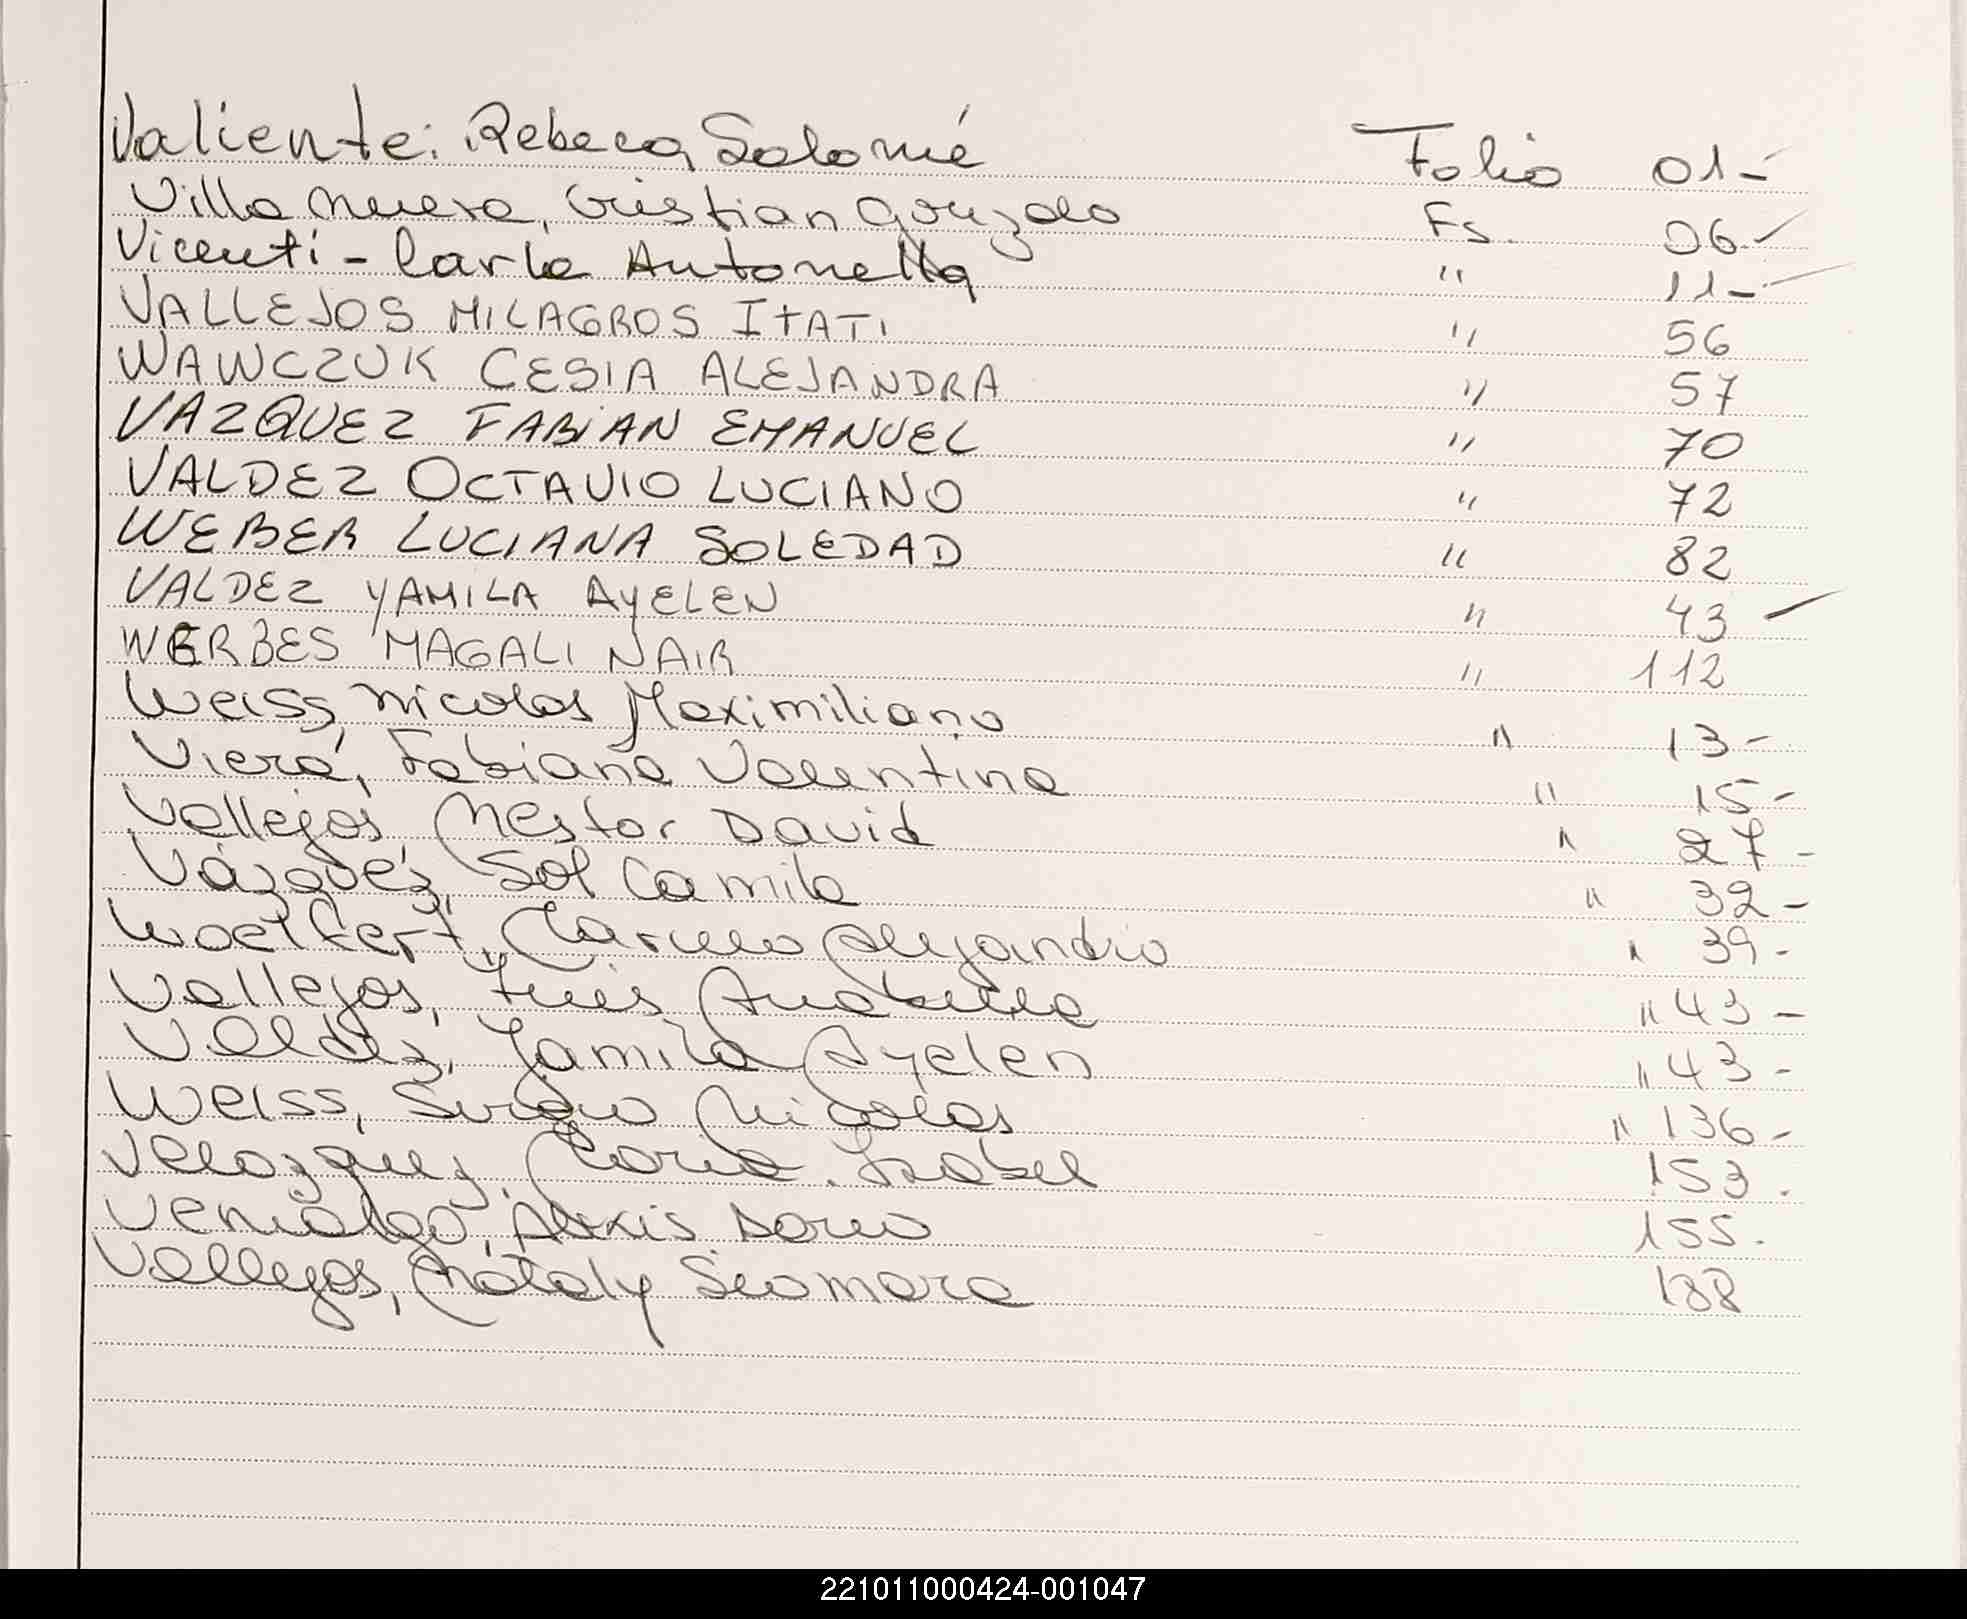 Valiente: Rebeca Salomé Folio 01-
Villa Nueva, Cristian Gonzalo Fs. 06
Vicenti - Carla Antonella " 11-
VALLEJOS MILAGROS ITATI " 56
WAWCZUK CESIA ALEJANDRA " 57
VAZQUEZ FABIAN EMANUEL " 70
VALDEZ OCTAVIO LUCIANO " 72
WEBER LUCIANA SOLEDAD " 82
VALDEZ YAMILA AYELEN " 43
WERBES MAGALI NAIR " 112
Weiss, Nicolas Maximiliano " 13-
Viera, Fabiana Valentina " 15-
Vallejos, Nestor David " 27-
Vázquez, Sol Camila " 32-
Woelfert, Alejandro " 39-
Vallejos, Anabella " 43-
Valdez, Yamila Ayelen " 43-
Weiss, Sergio Nicolas " 136-
Velazquez, Isabel 153.
Venialgo, Alexis Dario 155.
Vallejos, Nataly Seomara 188
221011000424-001047